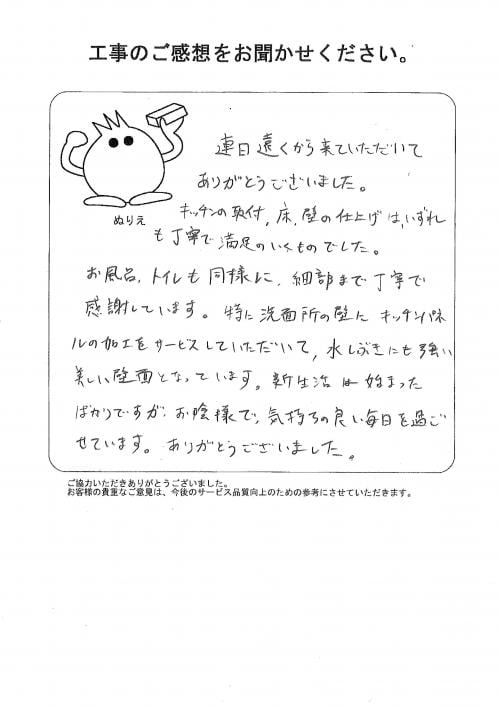 工事のご感想をお聞かせください。
連日遠くから来ていただいて
ありがとうございました。
ぬりえ
キッチンの取付,床,壁の仕上げは,いずれ
も丁寧で満足のいくものでした。
お風呂,トイレも同様に,細部まで丁寧で
感謝しています。特に洗面所の壁にキッチンパネ
ルの加工をサービスしていただいて,水しぶきにも強い
美しい壁面となっています。新生活は始まった
ばかりですが,お陰様で,気持ちの良い毎日を過ご
せています。ありがとうございました。
ご協力いただきありがとうございました。
お客様の貴重なご意見は、今後のサービス品質向上のための参考にさせていただきます。